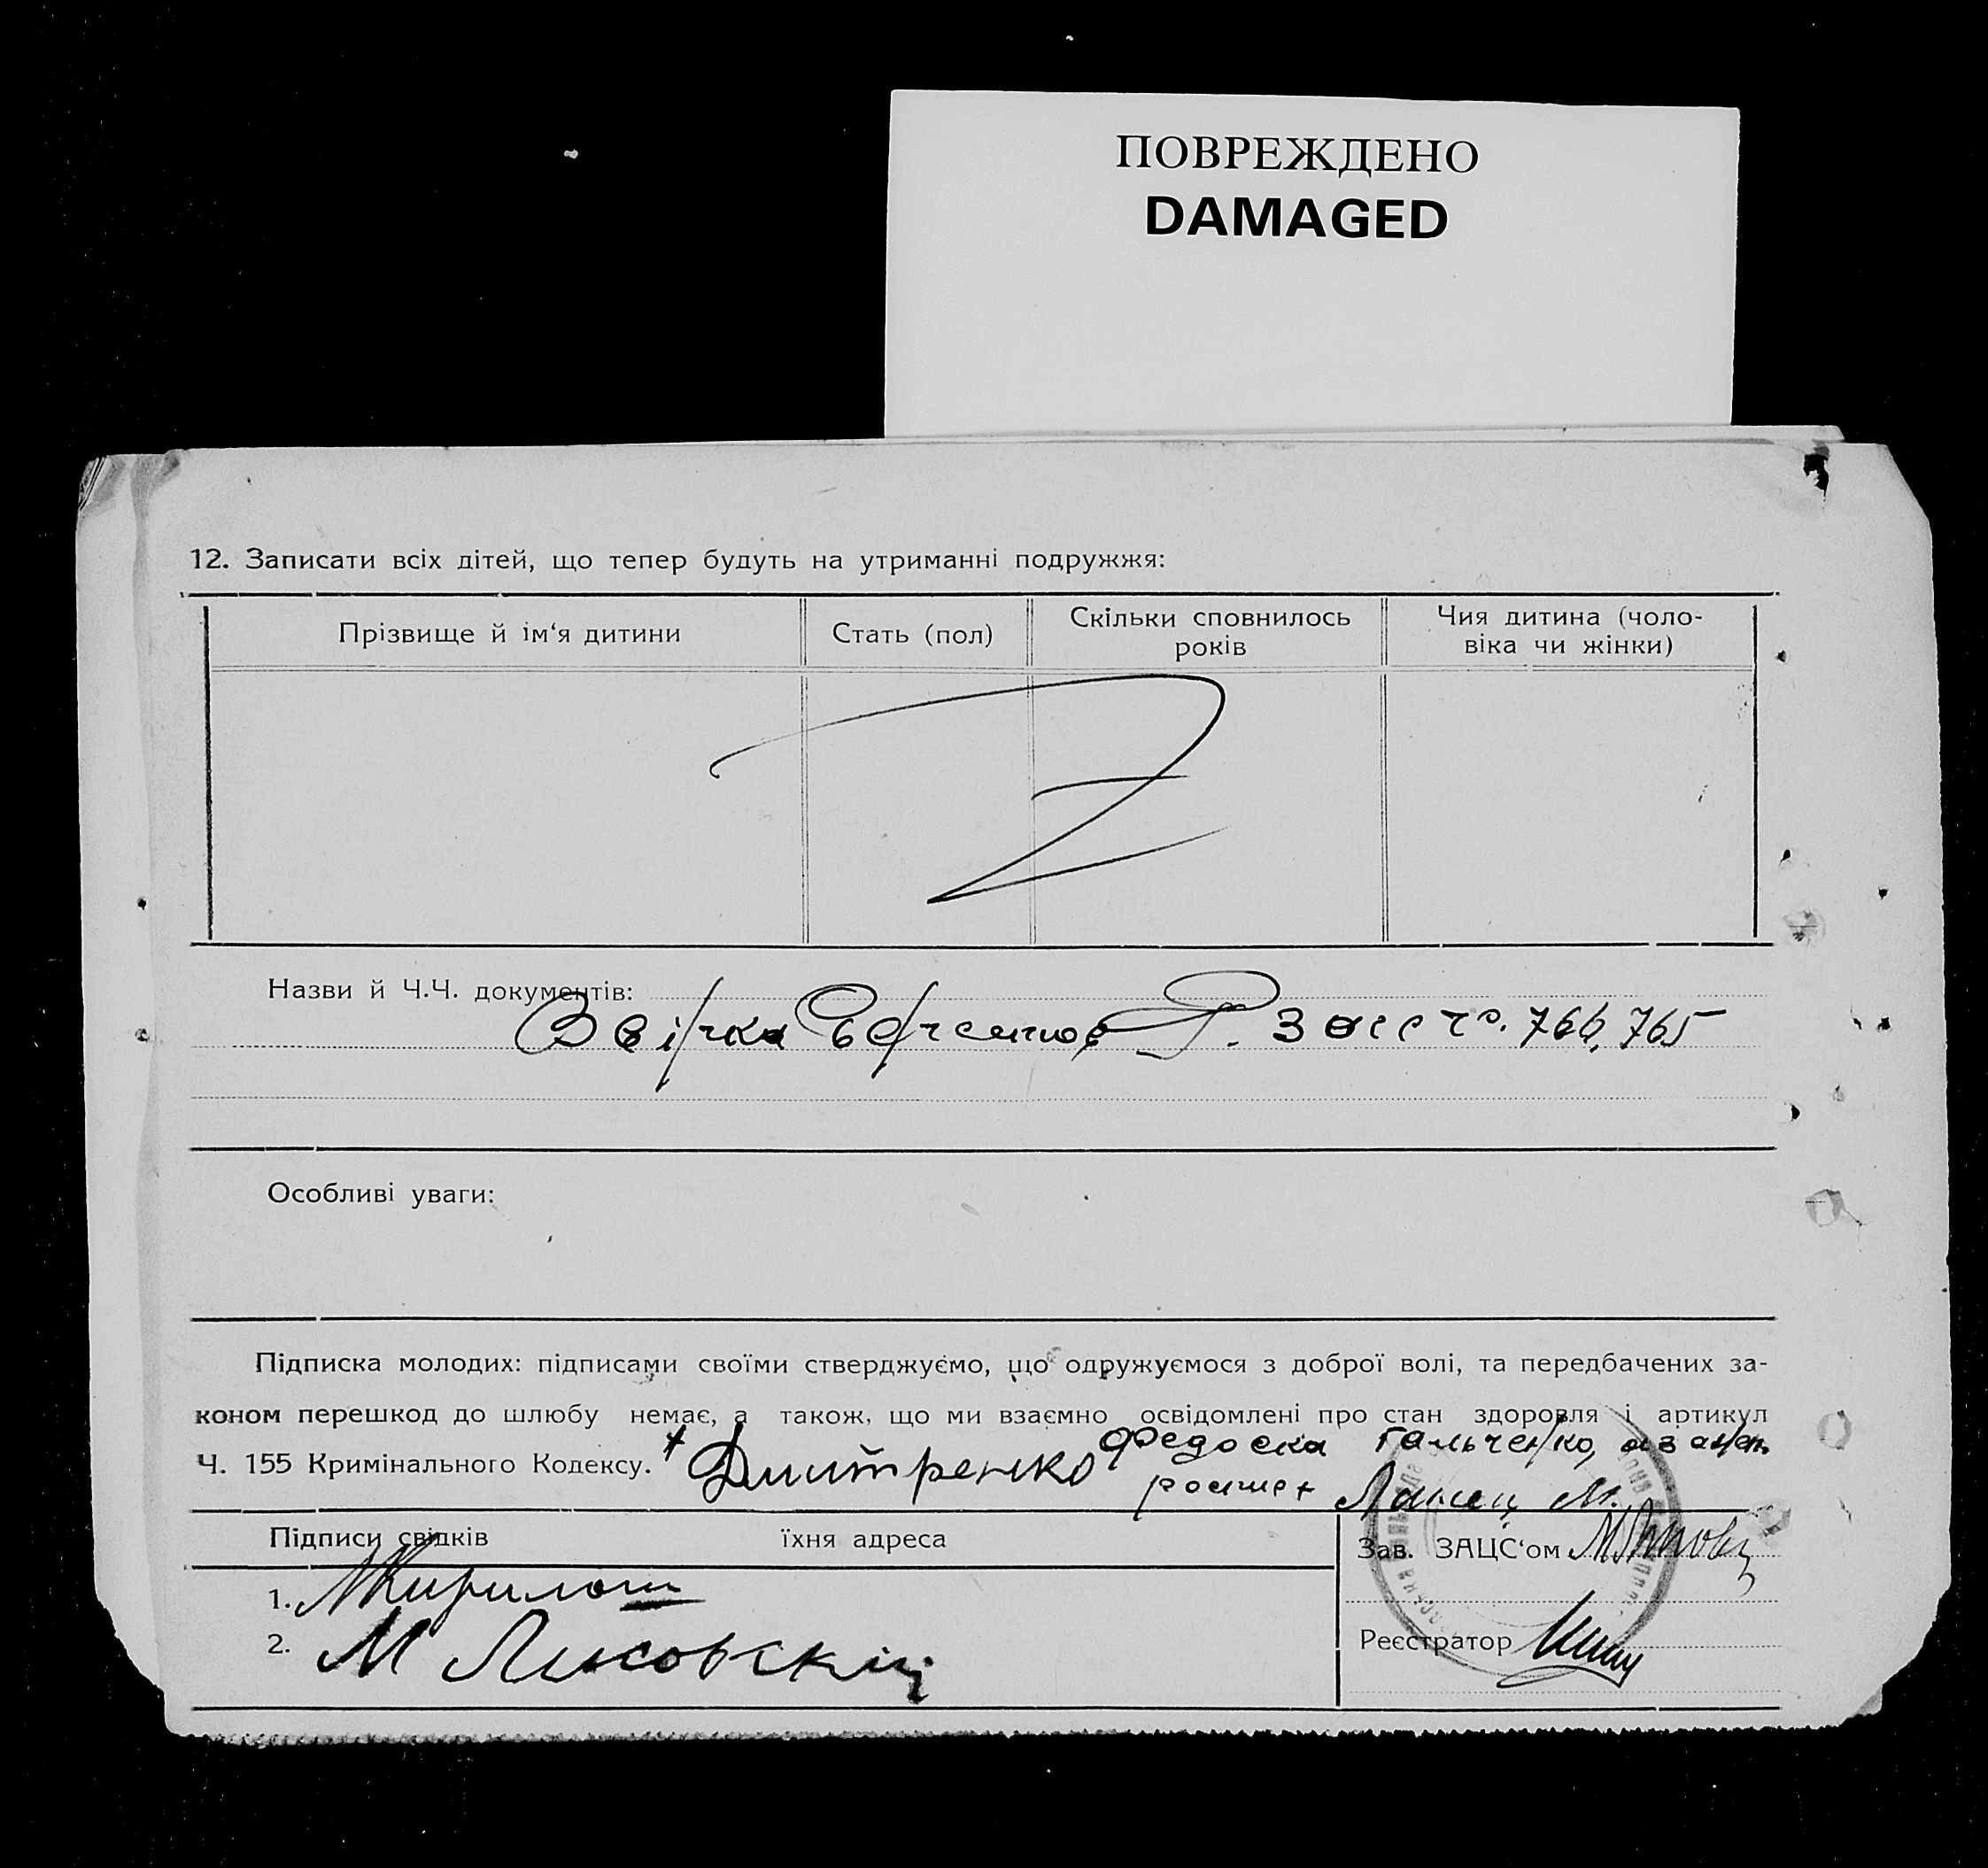 ПОВРЕЖДЕНО
DAMAGED
12. Записати всіх дітей, що тепер будуть на утриманні подружжя:
Прізвище й ім‘я дитини
Стать (пол)
Скільки сповнилось
років
Чия дитина (чоло-
віка чи жінки)
Назви й Ч.Ч. документів:
765
Особливі уваги:
Підписка молодих: підписами своїми стверджуємо, що одружуємося з доброї волі, та передбачених за-
коном перешкод до шлюбу немає, а також, що ми взаємно освідомлені про стан здоровля і артикул
Ч. 155 Кримінального Кодексу. Дмитренко Федоска Гальченко,
Підписи свідків їхня адреса
Зав. ЗАЦС‘ом
1.
2. М Лисовский
Реєстратор